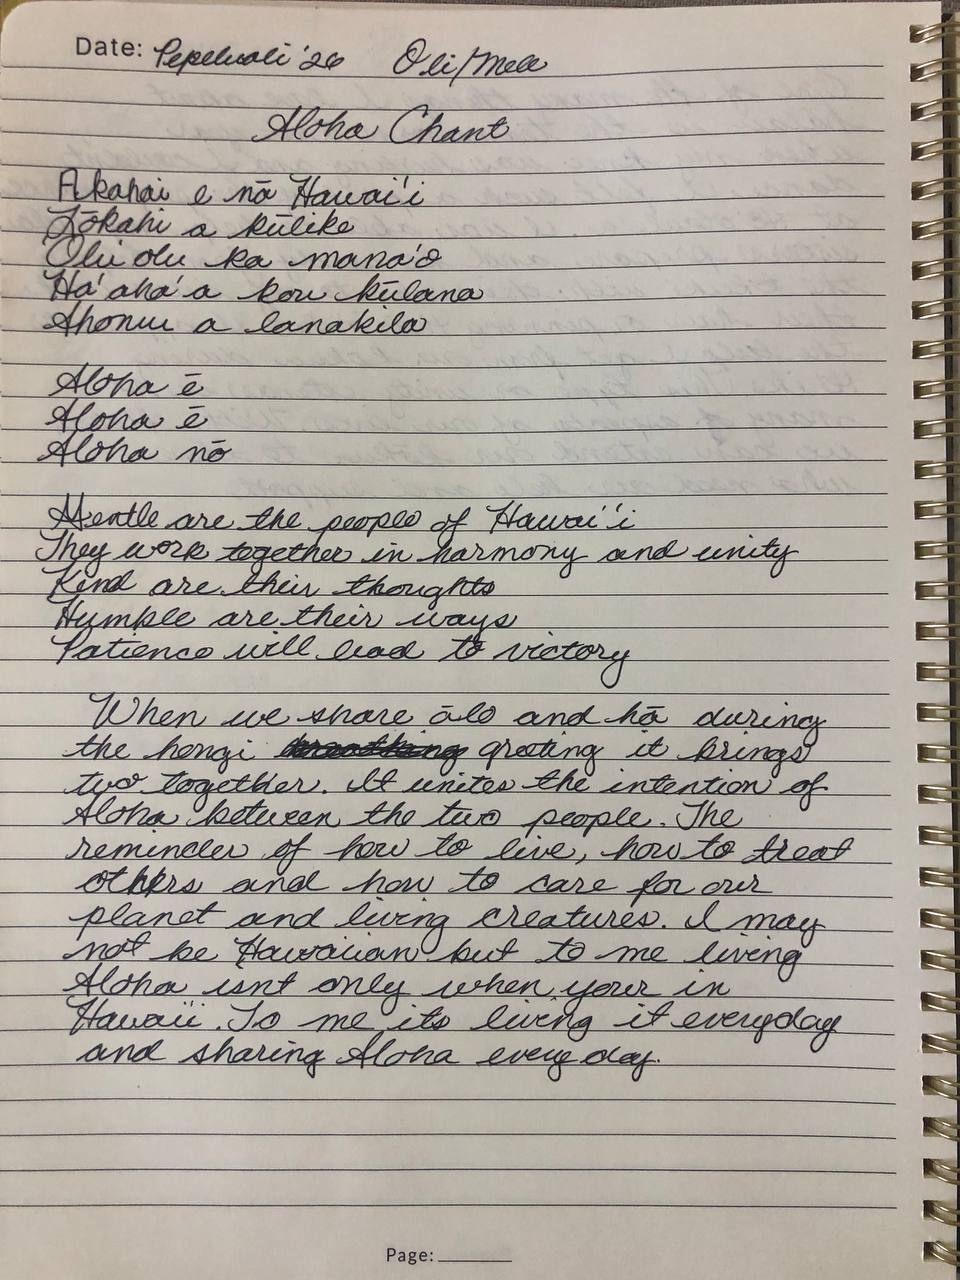 Date: Pepeluali '26 Oli/Mele
Aloha Chant
Akahai e nā Hawai'i
Lōkahi a kūlike
Olu olu ka mana'o
Ha'aha'a kou kūlana
Ahonui a lanakila
Aloha ē
Aloha ē
Aloha nō
Gentle are the people of Hawai'i
They work together in harmony and unity
Kind are their thoughts
Humble are their ways
Patience will lead to victory
When we share ālo and hā during
the hongi greeting it brings
two together. It unites the intention of
Aloha between the two people. The
reminder of how to live, how to treat
others and how to care for our
planet and living creatures. I may
not be Hawaiian but to me living
Aloha isnt only when your in
Hawai'i. To me its living it everyday
and sharing Aloha every day.
Page: